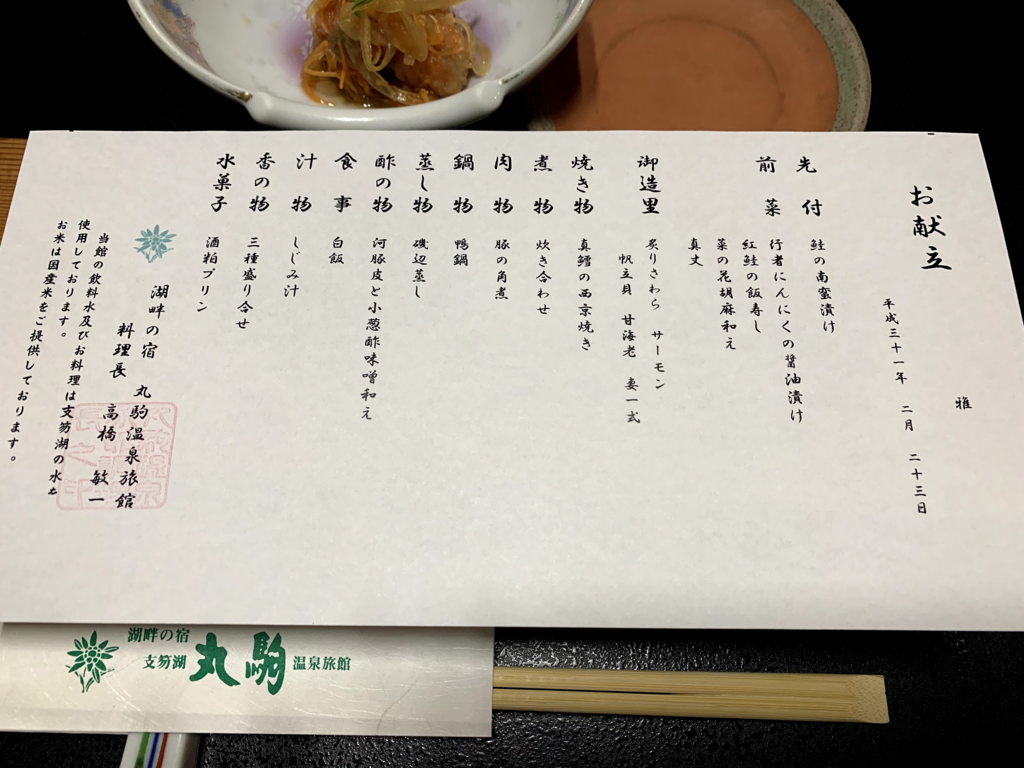 お献立
雅
平成三十一年 二月 二十三日
先付 鮭の南蛮漬け
前菜 行者にんにくの醤油漬け
紅鮭の飯寿し
菜の花胡麻和え
真丈
御造里 炙りさわら サーモン
帆立貝 甘海老 妻一式
焼き物 真鱈の西京焼き
煮物 炊き合わせ
肉物 豚の角煮
鍋物 鴨鍋
蒸し物 磯辺蒸し
酢の物 河豚皮と小葱酢味噌和え
食事 白飯
汁物 しじみ汁
香の物 三種盛り合せ
水菓子 酒粕プリン
湖畔の宿 丸駒温泉旅館
料理長 高橋 敏一
当館の飲料水及びお料理は支笏湖の水を
使用しております。
お米は国産米をご提供しております。
湖畔の宿
支笏湖 丸駒 温泉旅館